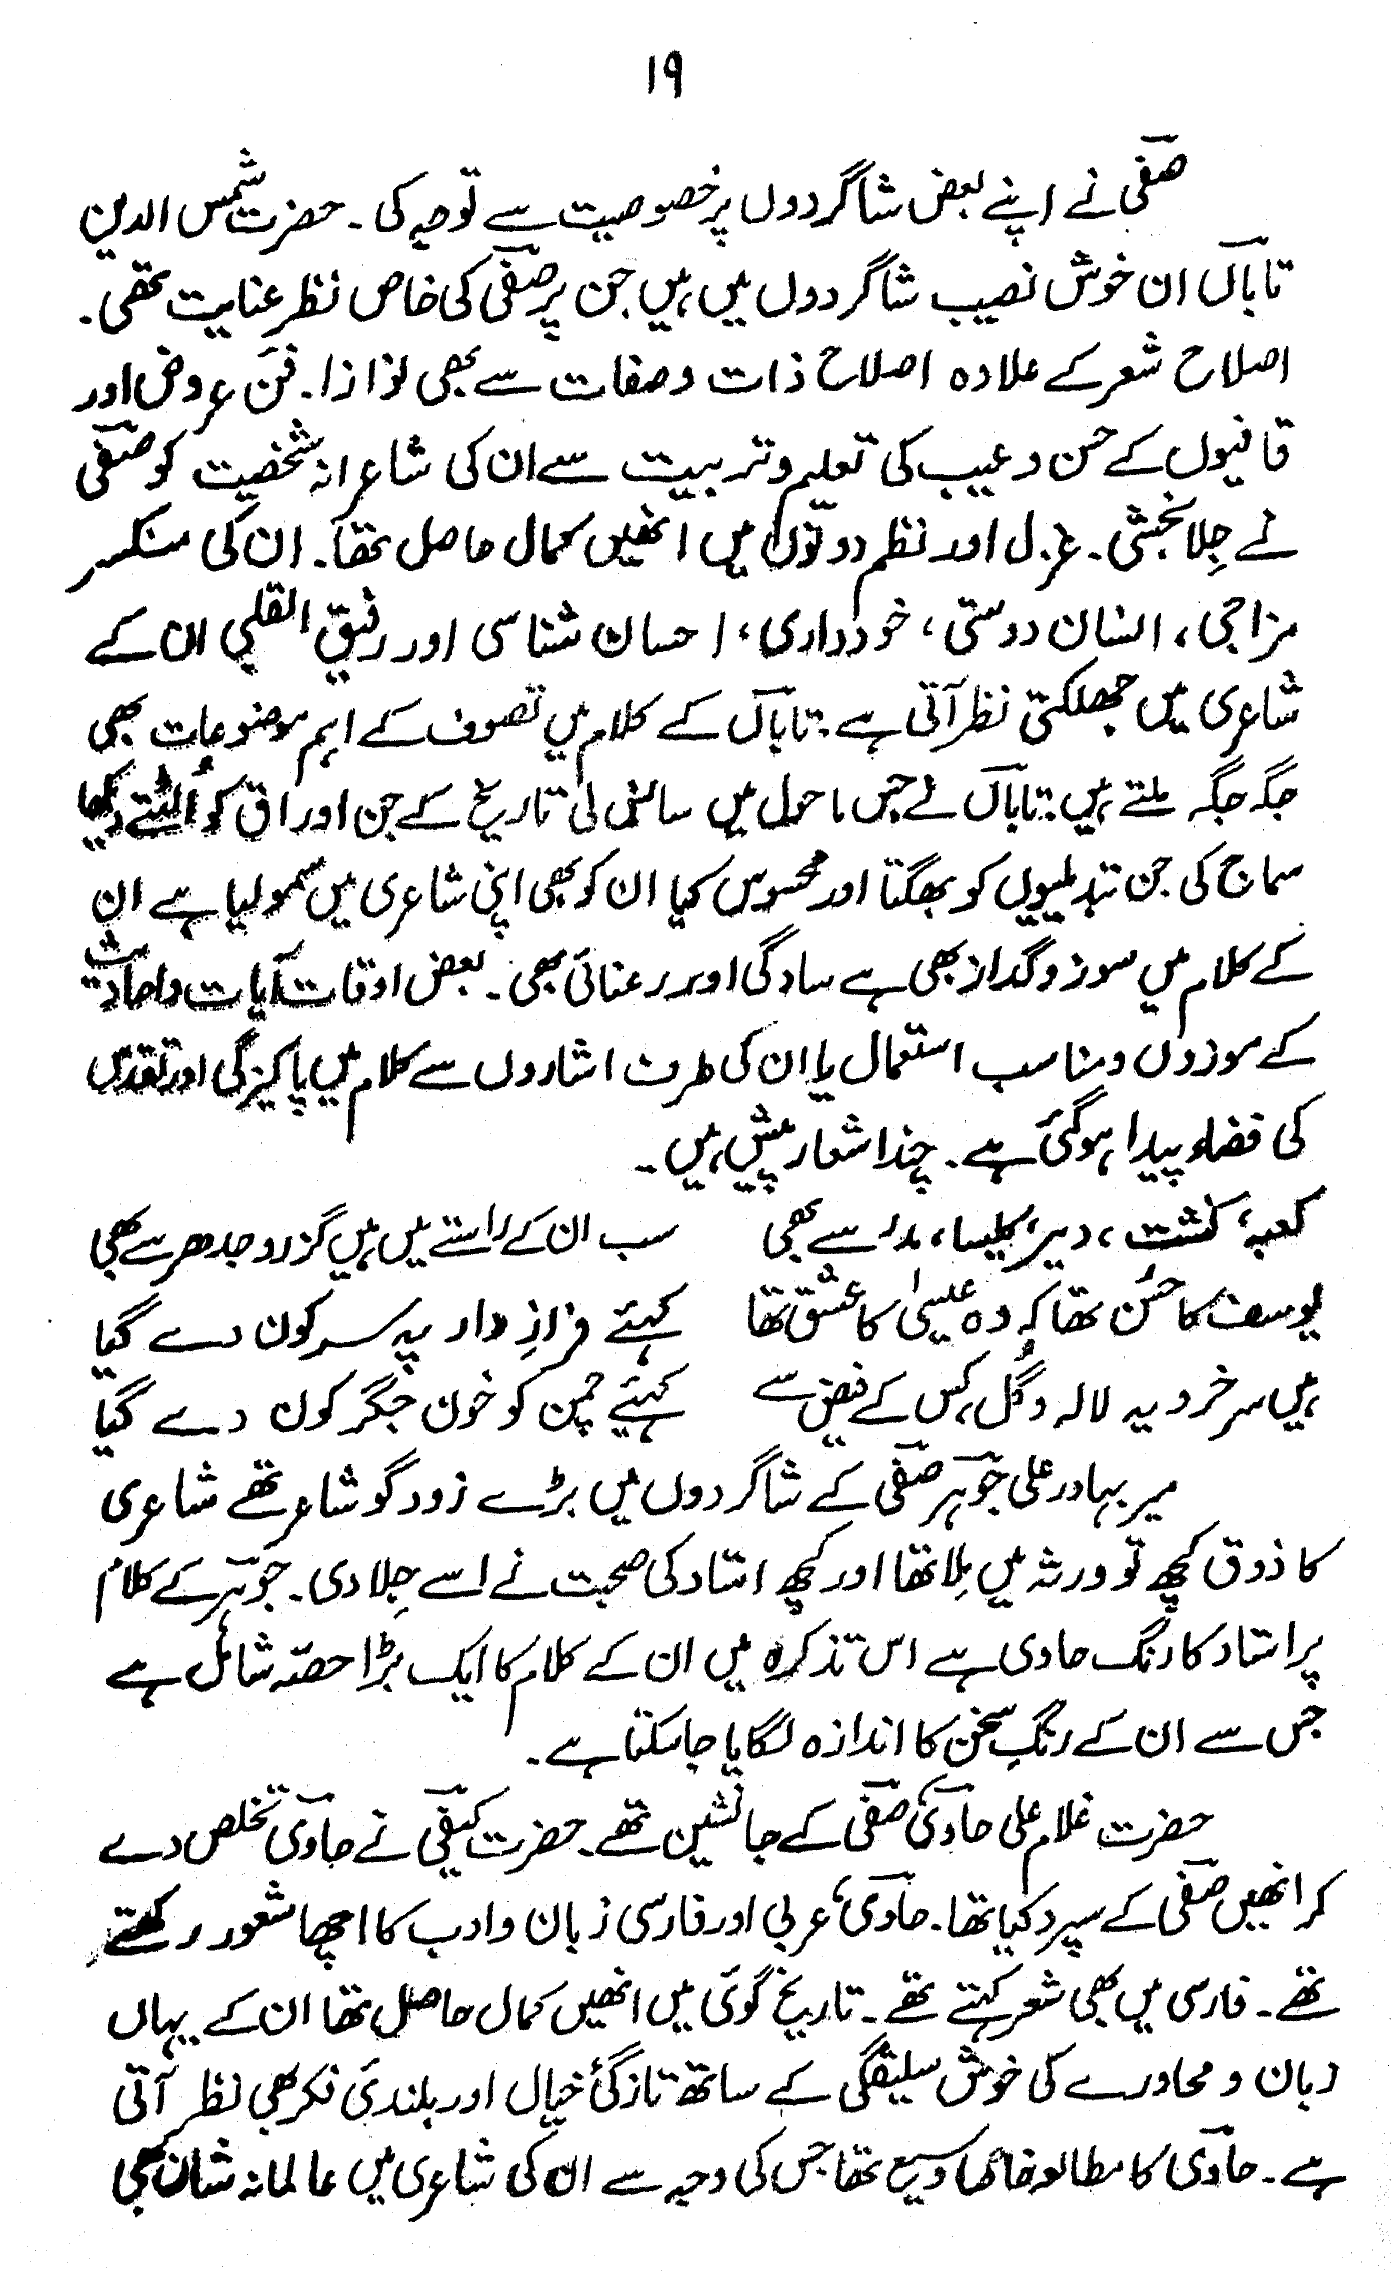 ۱۹
صفیؔ نے اپنے بعض شاگردوں پر خصوصیت سے توجہ کی ۔ حضرت شمس الدین
تاباںؔ ان خوش نصیب شاگردوں میں ہیں جن پر صفیؔ کی خاص نظرِ عنایت تھی ۔
اصلاح شعر کے علاوہ اصلاح ذات و صفات سے بھی نوازا ۔ فنِ عروض اور
قافیوں کے حسن و عیب کی تعلیم و تربیت سے ان کی شاعرانہ شخصیت کو صفیؔ
نے جِلا بخشی ۔ غزل اور نظم دونوں میں انھیں کمال حاصل تھا ۔ ان کی منکسر
مزاجی ، انسان دوستی ، خودداری ، احسان شناسی اور رفیق القلبی ان کے
شاعری میں جھلکتی نظر آتی ہے ۔ تاباںؔ کے کلام میں تصوف کے اہم موضوعات بھی
جگہ جگہ ملتے ہیں ۔ تاباںؔ نے جس ماحول میں سانس لی تاریخ کے جن اوراق کو اُلٹتے دیکھا
سماج کی جن تبدیلیوں کو بھگتا اور محسوس کیا ان کو بھی اپنی شاعری میں سمولیا ہے ان
کے کلام میں سوز و گداز بھی ہے سادگی اور رعنائی بھی ۔ بعض اوقات آیات و احادیث
کے موزوں و مناسب استعمال یا ان کی طرف اشاروں سے کلام میں پاکیزگی اور تقدس
کی فضاء پیدا ہوگئی ہے ۔ چند اشعار پیش ہیں ۔
کعبہ ، کنشت ، دیر ، کلیسا ، مدرسے بھی سب ان کے راستے میں ہیں گزرو جدھر سے بھی
یوسف کا حُسن تھا کہ وہ عیسیٰ کا عشق تھا کہئے فرازِ دار پہ سر کون دے گیا
ہیں سرخرو یہ لالہ و گُل کس کے فیض سے کہئیے چمن کو خون جگر کون دے گیا
میر بہادر علی جوہرؔ صفیؔ کے شاگردوں میں بڑے زود گو شاعر تھے شاعری
کا ذوق کچھ تو ورثہ میں مِلا تھا اور کچھ استاد کی صحبت نے اسے جِلا دی ۔ جوہرؔ کے کلام
پر استاد کا رنگ حاوی ہے اس تذکرہ میں ان کے کلام کا ایک بڑا حصّہ شامل ہے
جس سے ان کے رنگِ سخن کا اندازہ لگایا جاسکتا ہے ۔
حضرت غلام علی حاویؔ ، صفیؔ کے جانشین تھے ۔ حضرت کیفیؔ نے حاویؔ تخلص دے
کر انھیں صفیؔ کے سپرد کیا تھا ۔ حاویؔ ، عربی اور فارسی زبان و ادب کا اچھا شعور رکھتے
تھے ۔ فارسی میں بھی شعر کہتے تھے ۔ تاریخ گوئی میں انھیں کمال حاصل تھا ان کے یہاں
زبان و محاورے کی خوش سلیقگی کے ساتھ تازگئ خیال اور بلندئ فکر بھی نظر آتی
ہے ۔ حاویؔ کا مطالعہ خاصا وسیع تھا جس کی وجہ سے ان کی شاعری میں عالمانہ شان بھی